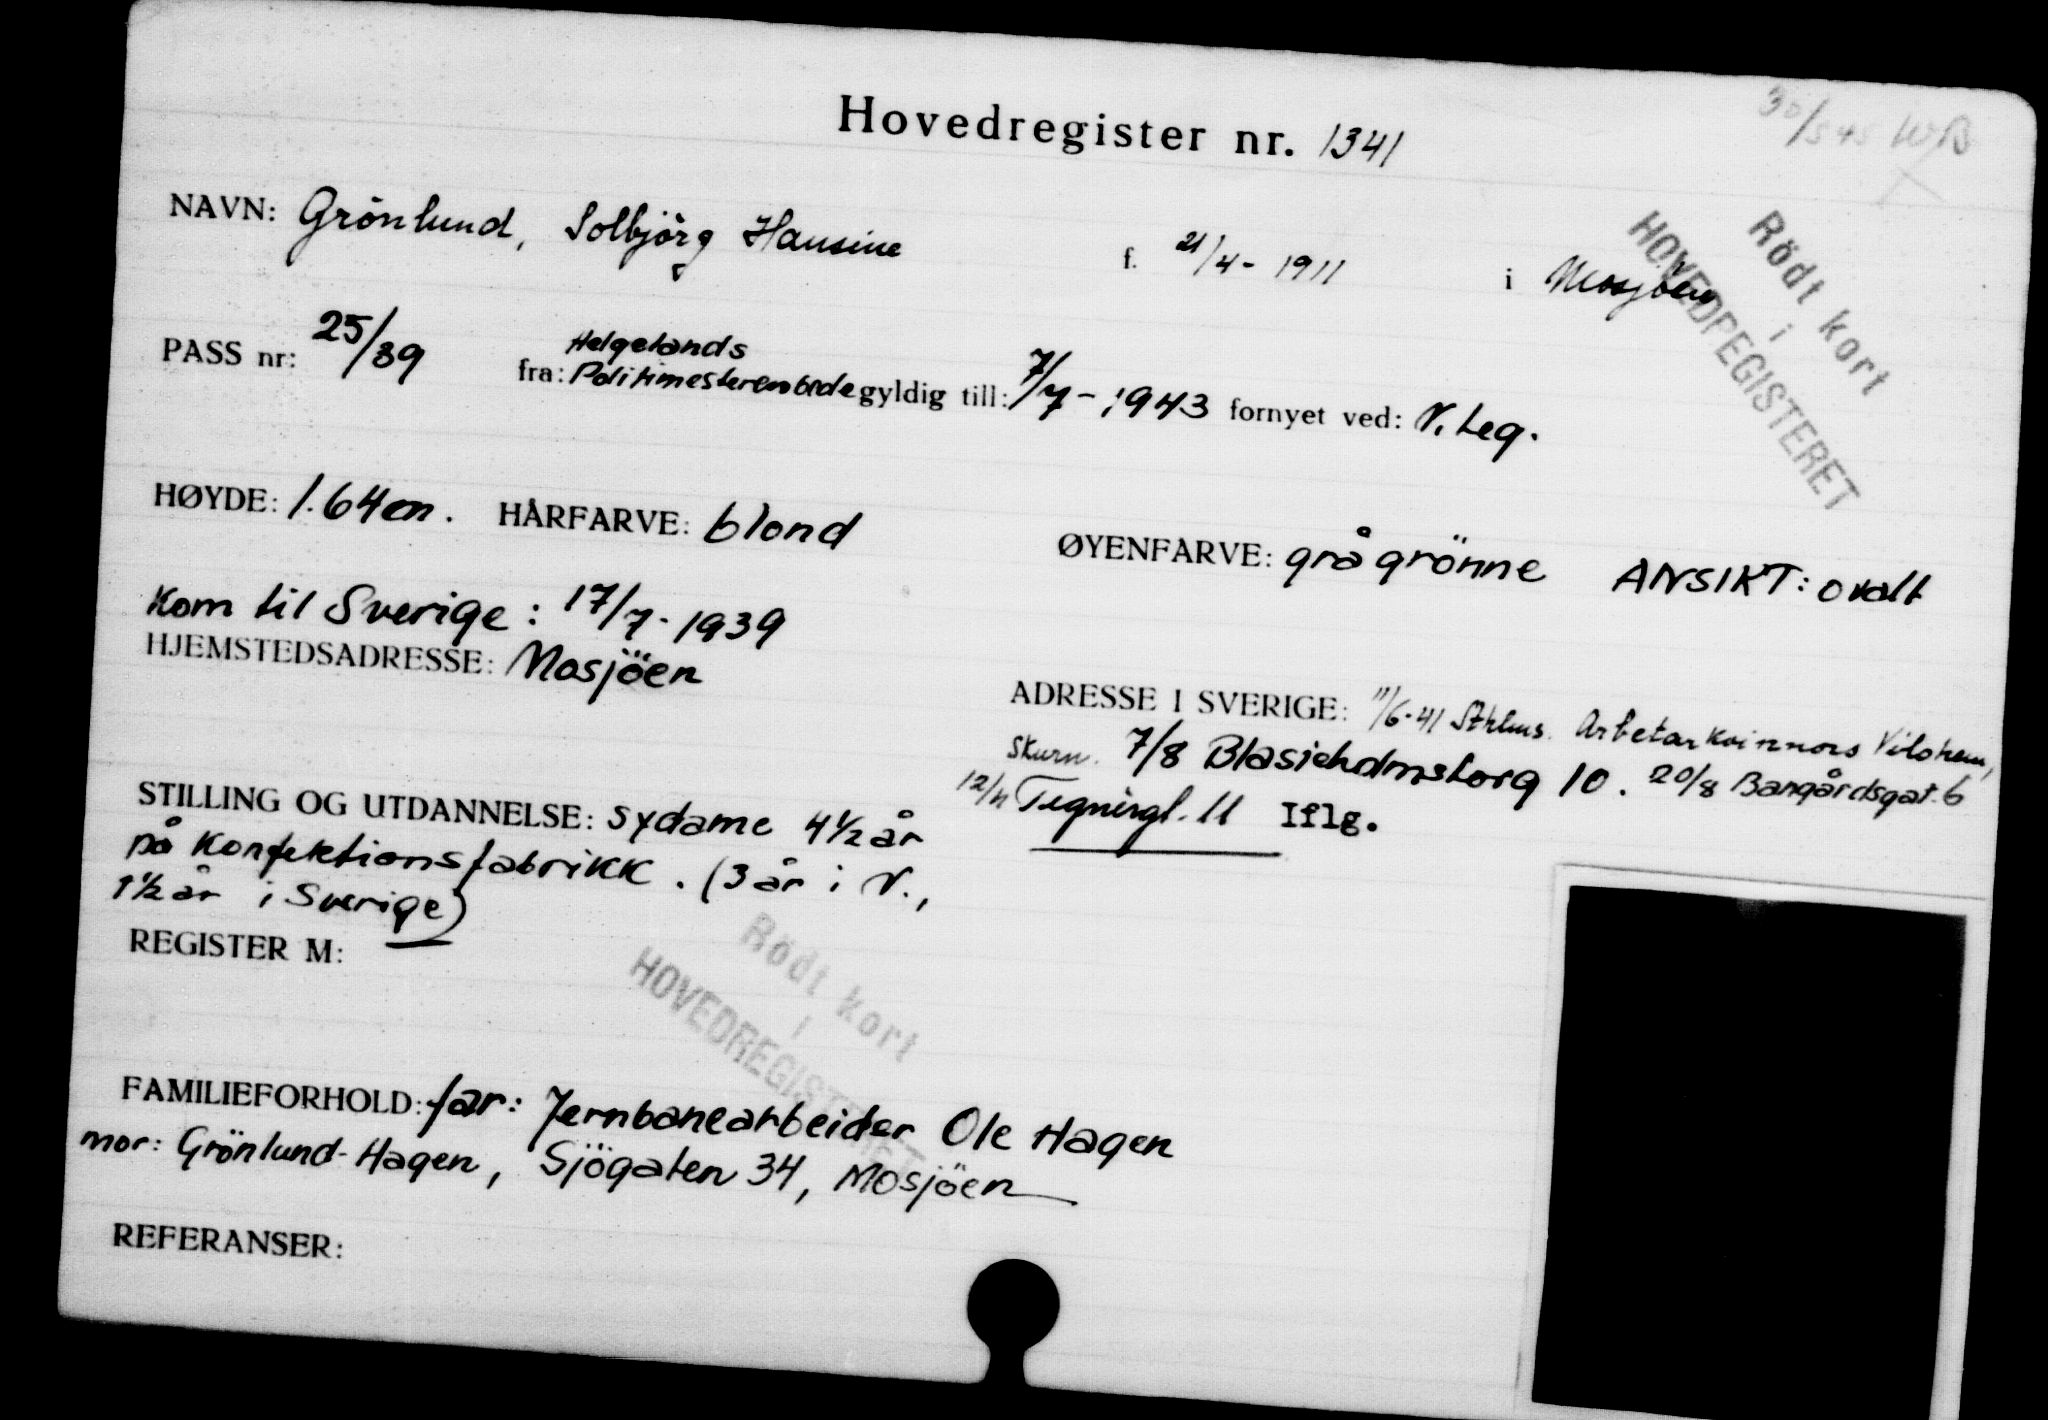 Hovedregister nr. 1341
30/5 45 WB
NAVN: Grönlund, Solbjörg Hansine f. 21/4 - 1911 i Mosjöen
Rödt kort
i
HOVEDREGISTERET
PASS nr: 25/39 fra: Helgelands
Politimesterembede gyldig till: 7/7 - 1943 fornyet ved: N. Leg.
HØYDE: 1.64 m. HÅRFARVE: blond ØYENFARVE: grågrönne ANSIKT: ovalt
Kom til Sverige: 17/7 - 1939
HJEMSTEDSADRESSE: Mosjöen
ADRESSE I SVERIGE: 11/6-41 Sthlms. Arbetarkvinnors Vilohem,
Skuru. 7/8 Blasieholmstorg 10. 20/8 Bangårdsgat. 6
12/11 Tegnérgt. 11 Iflg.
STILLING OG UTDANNELSE: sydame 4 1/2 år
på Konfektionsfabrikk. (3 år i N.,
1 1/2 år i Sverige)
REGISTER M:
Rödt kort
i
HOVEDREGISTERET
FAMILIEFORHOLD: far: Jernbanearbeider Ole Hagen
mor: Grönlund-Hagen, Sjögaten 34, Mosjöen
REFERANSER: